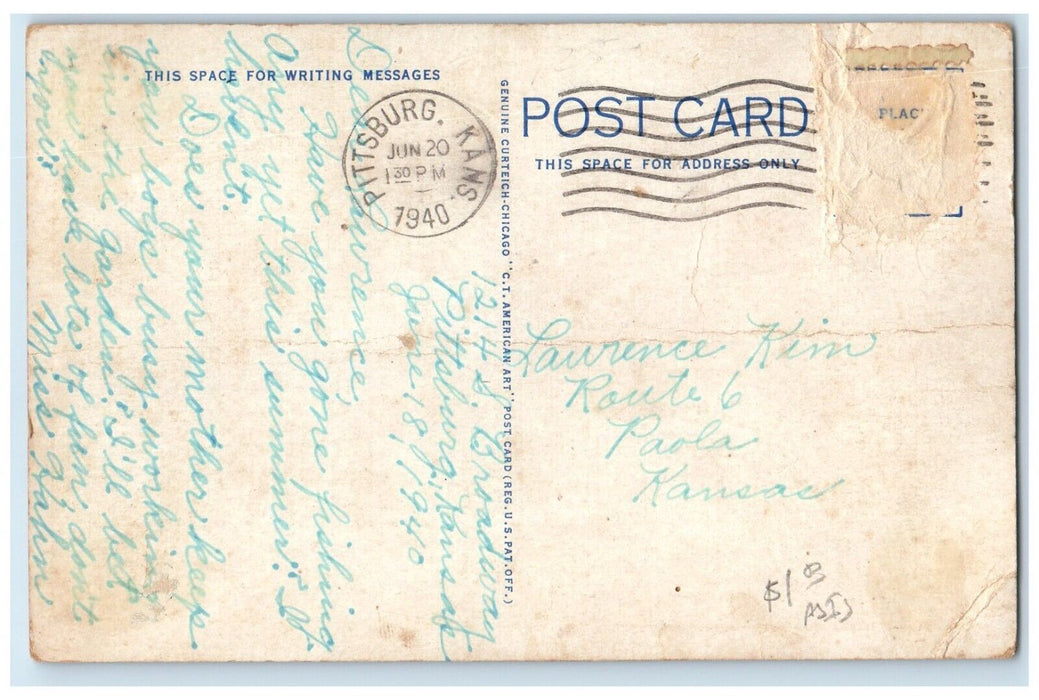 THIS SPACE FOR WRITING MESSAGES
1214 S. Broadway
Pittsburg, Kansas
June 18, 1940
Dear Lawrence,
Have you gone fishing
any yet this summer? I
haven't.
Does your mother keep
you boys busy working
in the garden? I'll bet
you have lots of fun, don't
you?
Miss
PITTSBURG, KANS.
JUN 20
1 30 PM
1940
GENUINE CURTEICH-CHICAGO "C.T. AMERICAN ART" POST CARD (REG. U.S. PAT. OFF.)
POST CARD
THIS SPACE FOR ADDRESS ONLY
PLAC
Lawrence Kim
Route 6
Paola
Kansas
$1